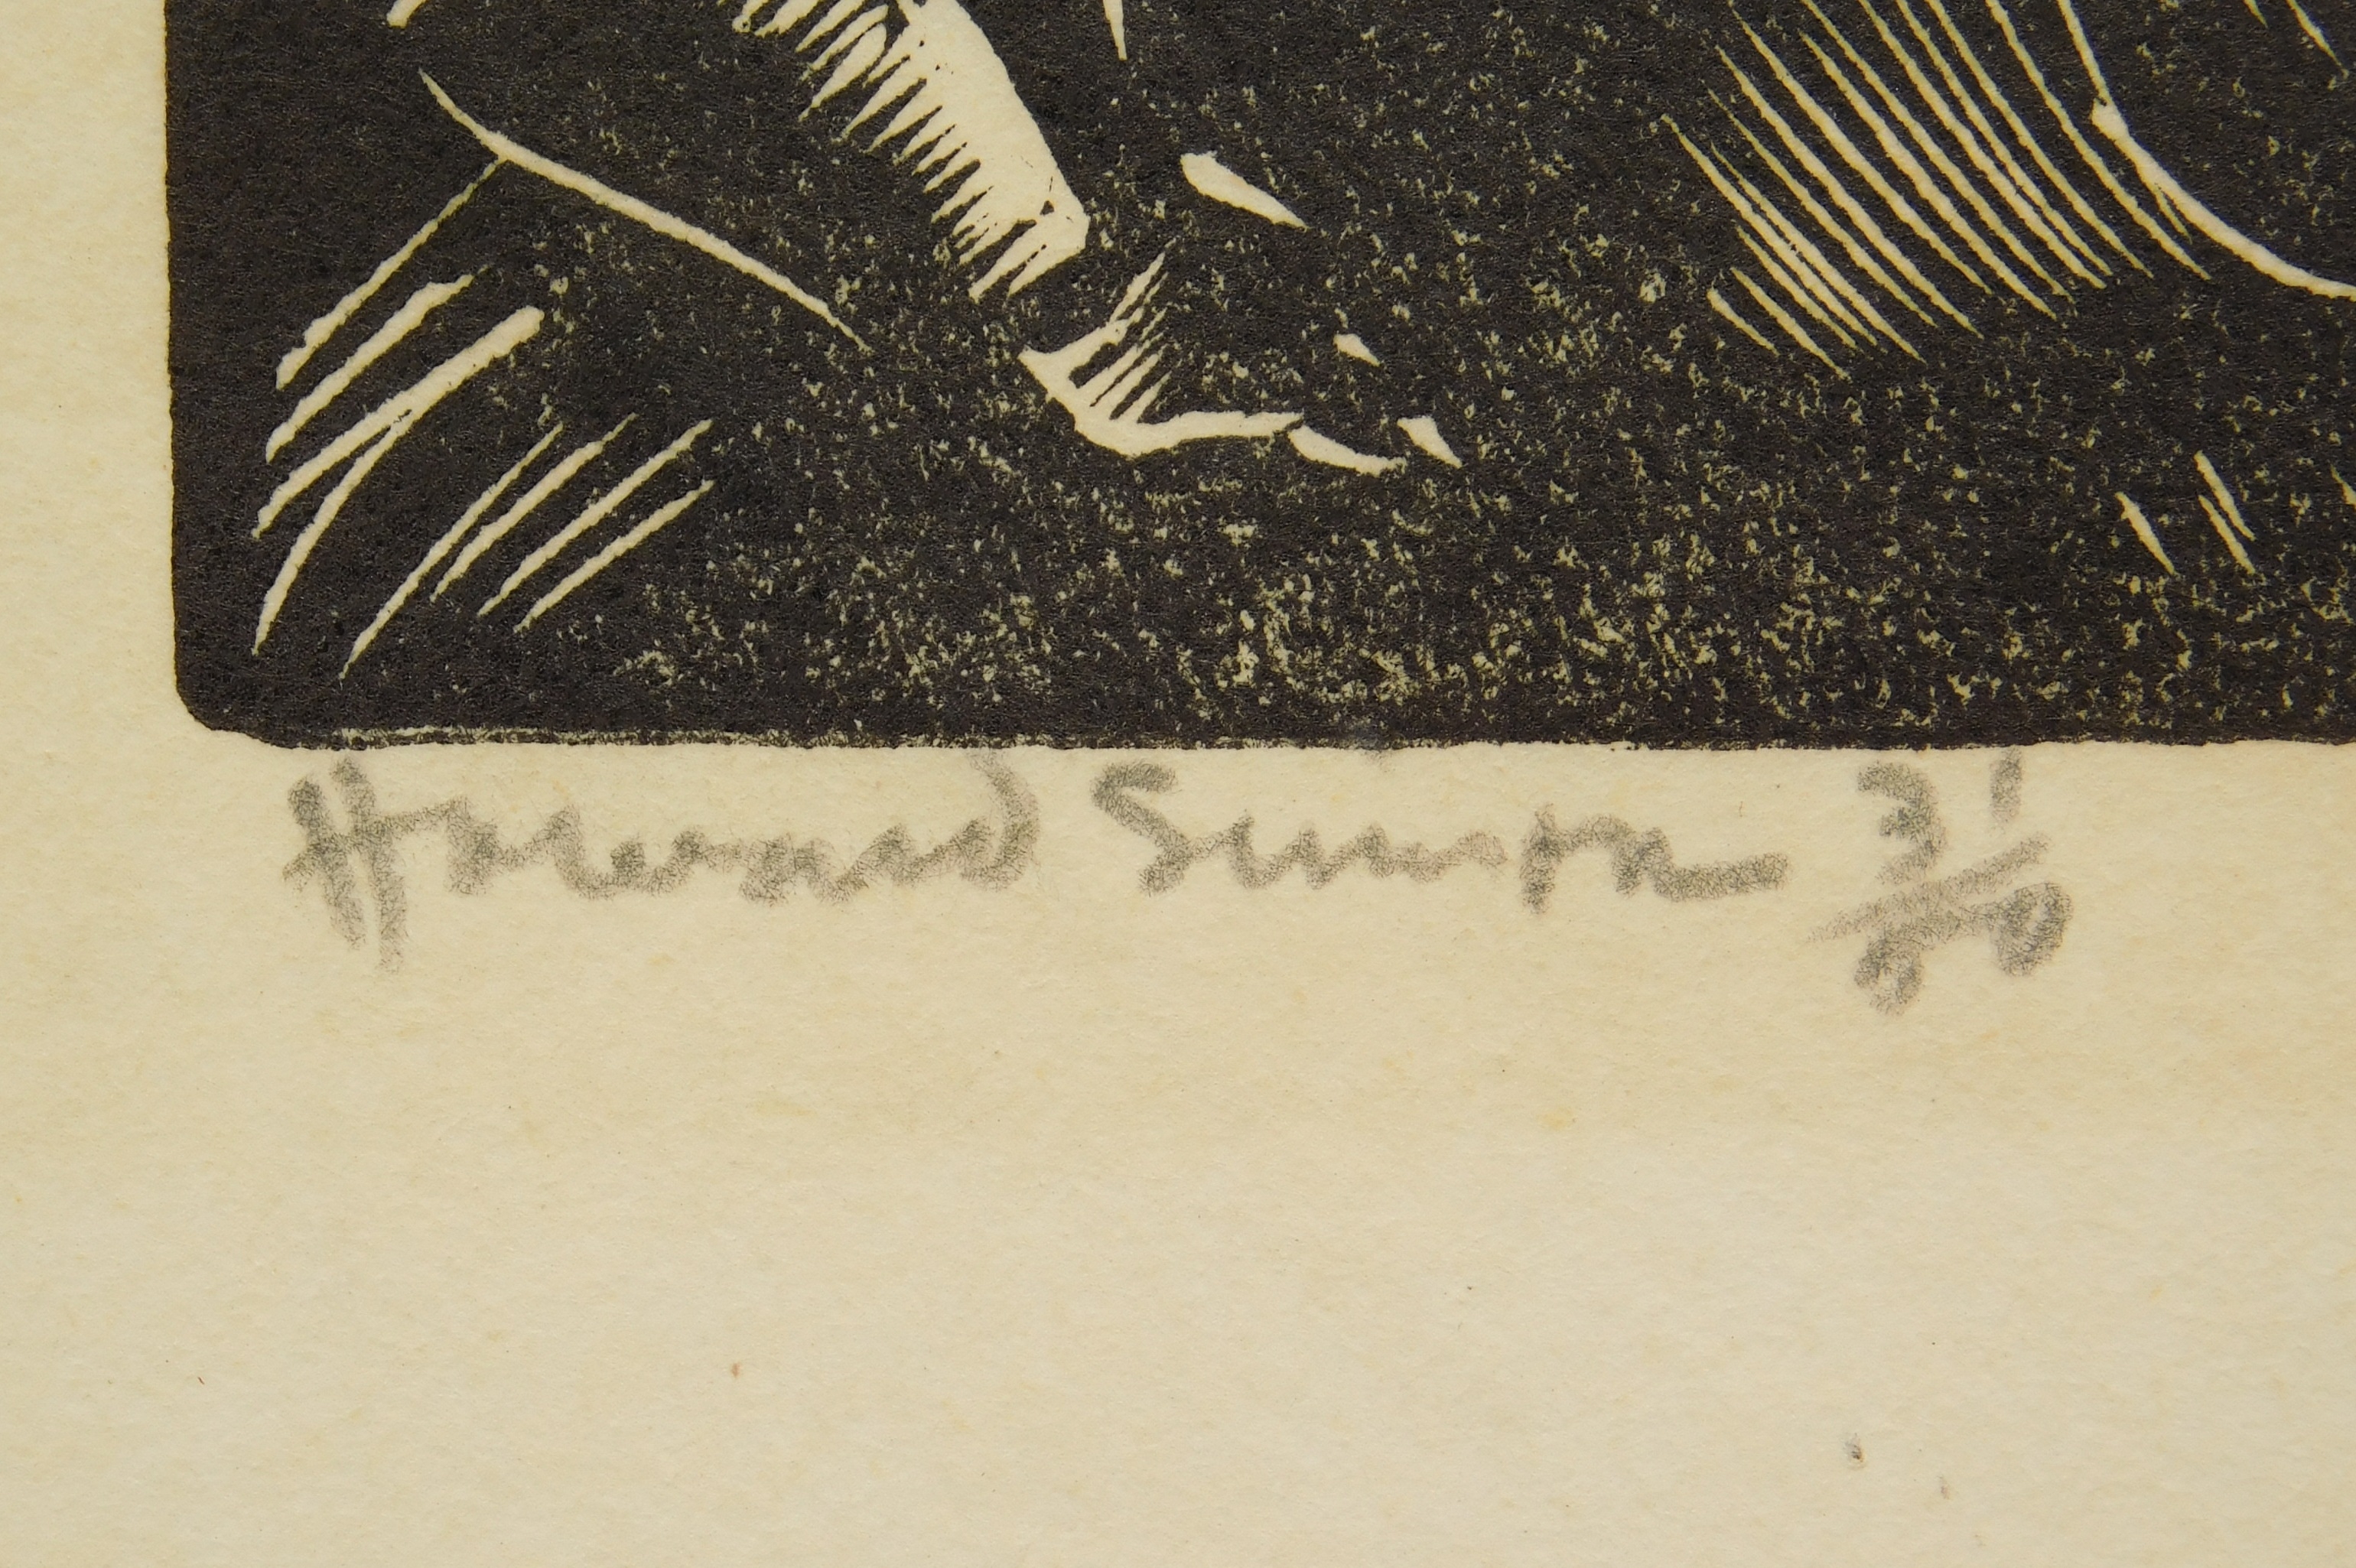 Howard Simon 31/60